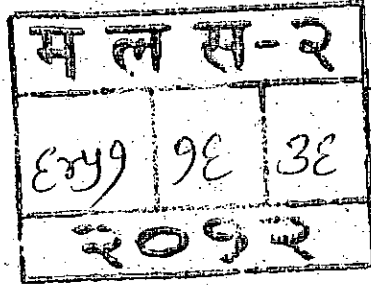 म ल स-२
६२५१ १६ ३६
२०१२